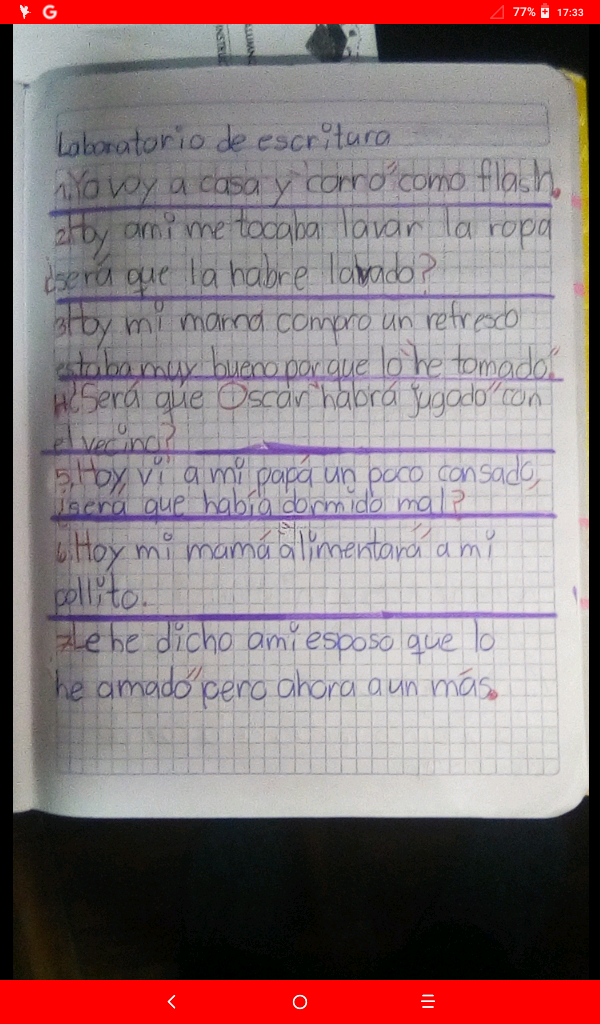 77% 17:33
Laboratorio de escritura
1. Yo voy a casa y "corro" como flash.
2. Hoy ami me tocaba lavar la ropa
¿será que la habre lavado?
3. Hoy mi mamá compro un refresco
estaba muy bueno por que lo "he tomado."
4. ¿Será que Oscar "habrá jugado" con
el vecino?
5. Hoy, vi a mi papá un poco cansado,
¿será que había dormido mal?
6. Hoy mi mamá "alimentará" a mi
pollito.
7. Le he dicho ami esposo que lo
he amado" pero ahora aun más.